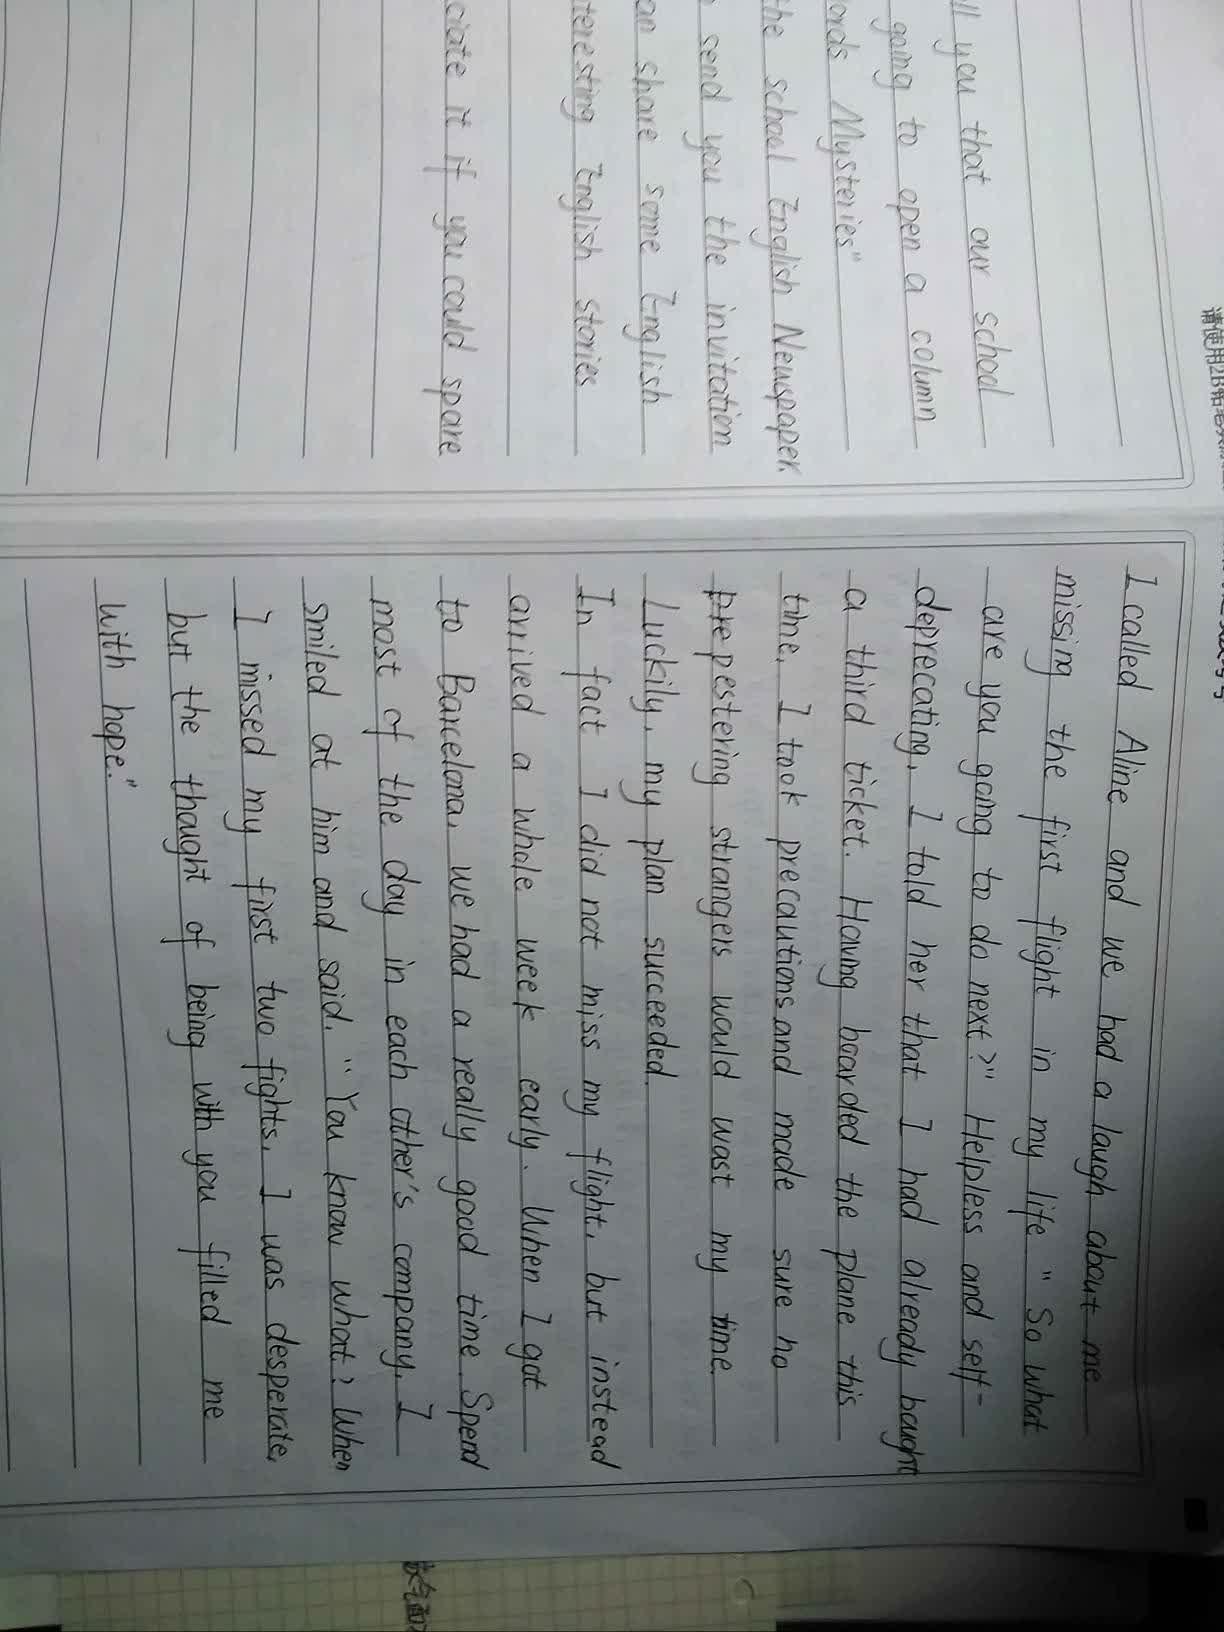 ll you that our school
going to open a column
Mysteries"
the school English Newspaper.
send you the invitation
an share some English
teresting English stories
ciate it if you could spare
I called Aline and we had a laugh about me
missing the first flight in my life " So what
are you going to do next?" Helpless and self-
deprecating, I told her that I had already bought
a third ticket. Having boarded the plane this
time, I took precautions and made sure no
pestering strangers would wast my time.
Luckily, my plan succeeded.
In fact I did not miss my flight, but instead
arrived a whole week early. When I got
to Barcelona, we had a really good time. Spend
most of the day in each other's company, I
smiled at him and said. "You know what? When
I missed my first two fights, I was desperate,
but the thought of being with you filled me
with hope."
请使用2B铅笔